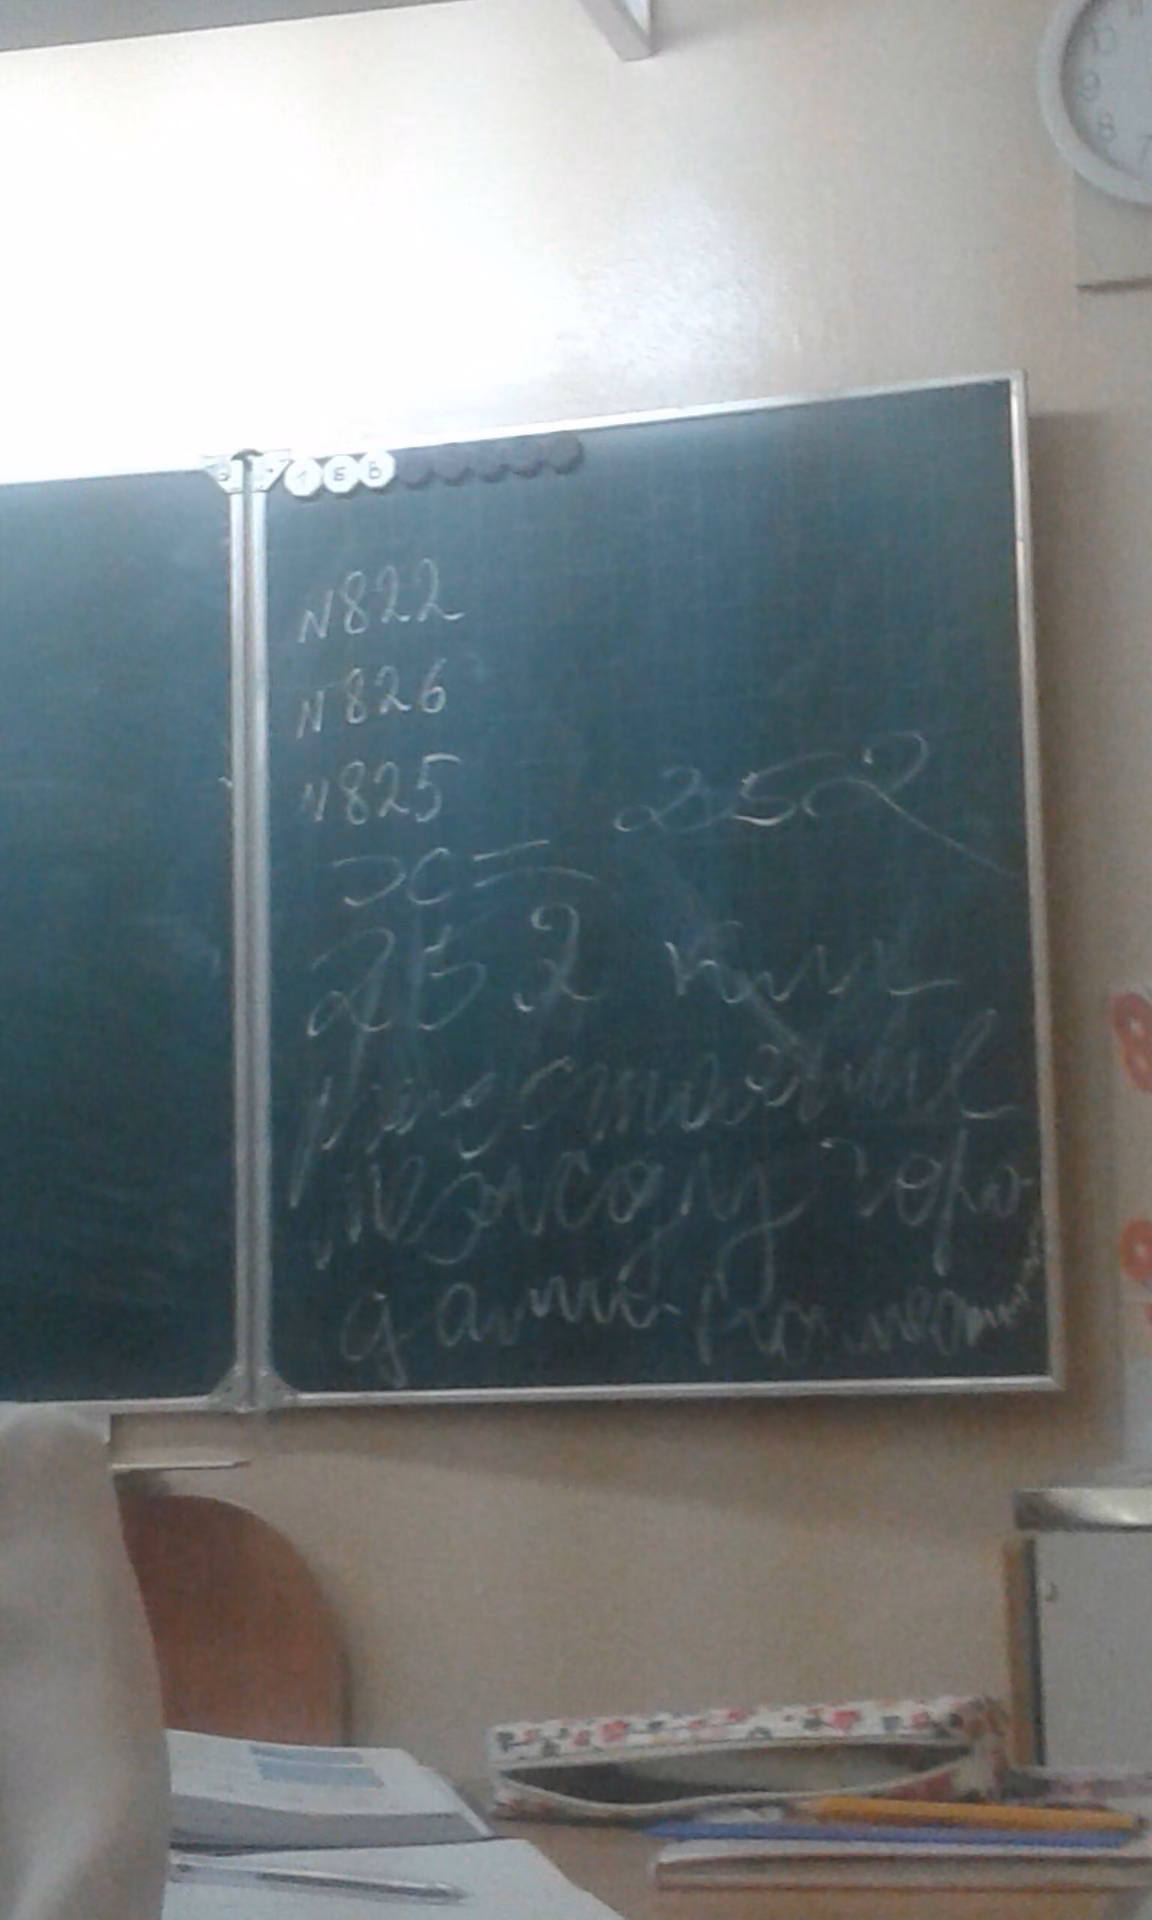 N822
N826
N825
x = 252
252 км
расстояние
между горо-
дами